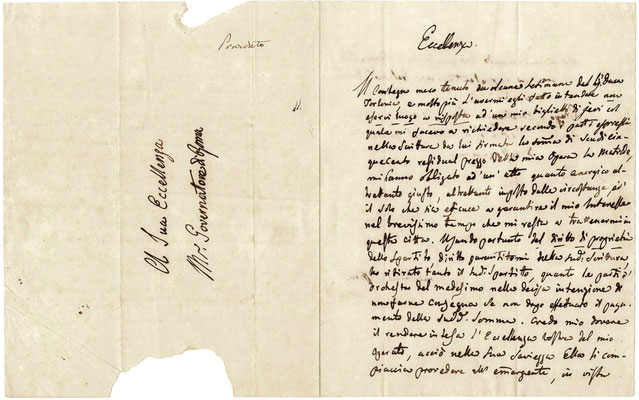 A Sua Eccellenza
Mr. Governatore di Roma
Eccellenza.
Il Contegno meco tenuto da alcune settimane dal Sig. Duca
Torlonia, e molto più l'avermi egli fatto intendere non
esservi luogo a risposta ad un mio biglietto di jeri col
quale mi facevo a richiedere secondo i patti espressi
nella Scrittura da lui firmata la Somma di Scudi cin-
quecento residual prezzo della mia Opera La Matilde,
mi hanno obligato ad un' atto quanto energico al-
trettanto giusto, altrettanto imposto dalle circostanze, ed è
il solo che sia efficace a garantire il mio Interesse
nel brevissimo tempo che mi resta a trattenermi in
questa città. Usando pertanto del diritto di proprietà
dello Spartito diritto garantitomi dalla Sud. Scrittura
ho ritirato tanto il Sud. Spartito, quanto le parti d'
orchestra del medesimo nella decisa intenzione di
non farne consegna se non dopo effettuato il paga-
mento della Sudd. Somma. Credo mio dovere
il rendere intesa l'Eccellenza Vostra del mio
operato, acciò nella Sua Saviezza Ella si com-
piaccia provedere all' emergente, in vista